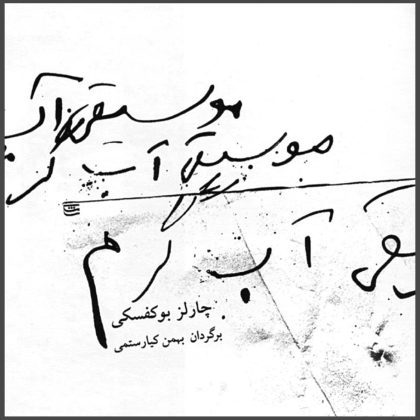 موسیقی آب
موسیقی آب گر
یقی آب گرم
چارلز بوکفسکی
برگردان بهمن کیارستمی